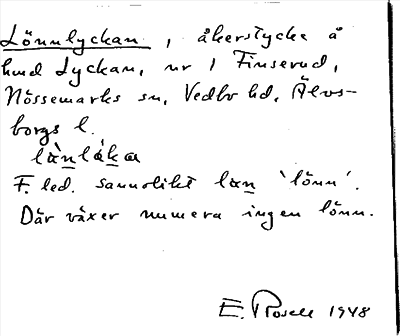 Lönnlyckan, åkerstycke å
hmd Lyckan, nr 1 Finserud,
Nössemarks sn, Vedbo hd, Älvs-
borgs l.
F. led. sannolikt
'lönn'.
Där växer numera ingen lönn.
E. Rosell 1948